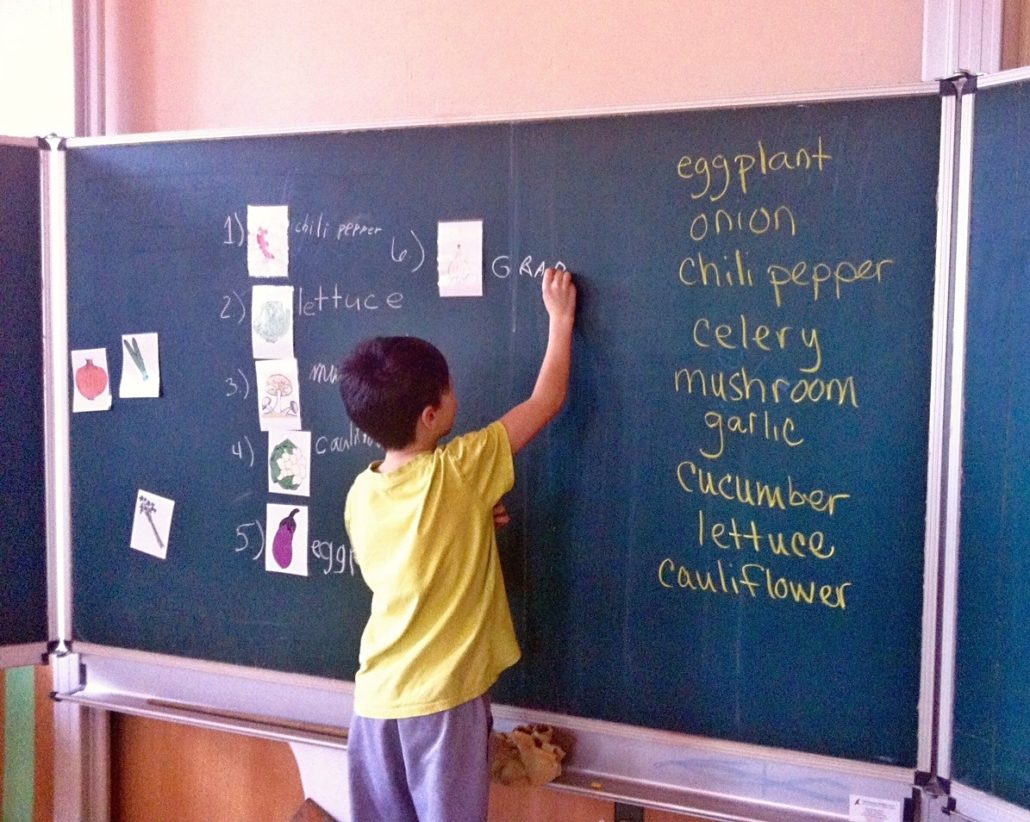 1) chili pepper
2) lettuce
3) mu
4) cauliflo
5) eggp
6) GRA
eggplant
onion
chili pepper
celery
mushroom
garlic
cucumber
lettuce
cauliflower